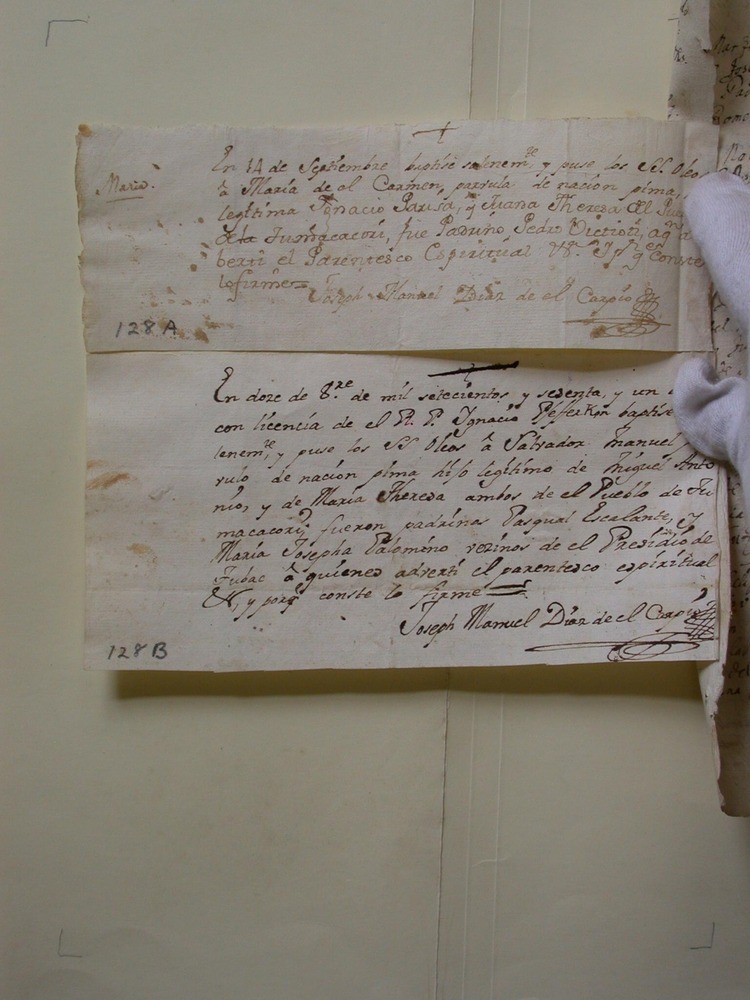 Maria.
En 14 de Septiembre baptisé solenem.te y puse los SS. Oleos
à María de el Carmen, parvula de nacion pima,
legitima Ignacio Parisa, y Juana Theresa del
de Tumacacori, fue Padrino Pedro à q.n ad
berti el Parentesco Espiritual &.a Y p.r q̃ Conste
lo firmé
Joseph Manuel Diaz de el Carpio
128 A
En doze de 8.re de mil setecientos y sesenta, y un
con licencia de el R. P. Ignacio Pfefferkon baptisé
lenem.te, y puse los SS Oleos à Salvador Manuel
vulo de nacion pima hijo legitimo de Miguel Anto
nio, y de María Theresa ambos de el Pueblo de Tu
macacori; fueron padrinos Pasqual Escalante, y
María Josepha Palomino vezinos de el Presidio de
Tubac à quienes adverti el parentesco espiritual
&, y porq̃ conste lo firmé
Joseph Manuel Diaz de el Carpio
128 B